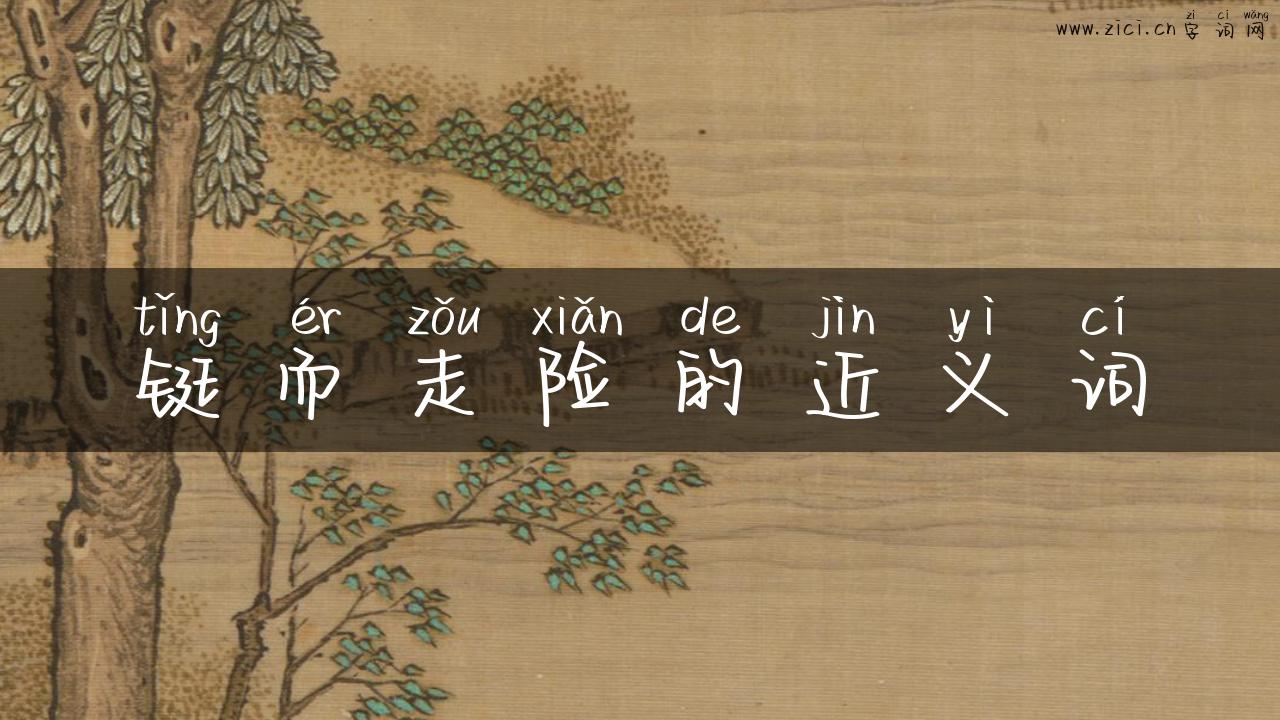 zì cí wǎng
www.zici.cn 字词网
tǐng ér zǒu xiǎn de jìn yì cí
铤而走险的近义词